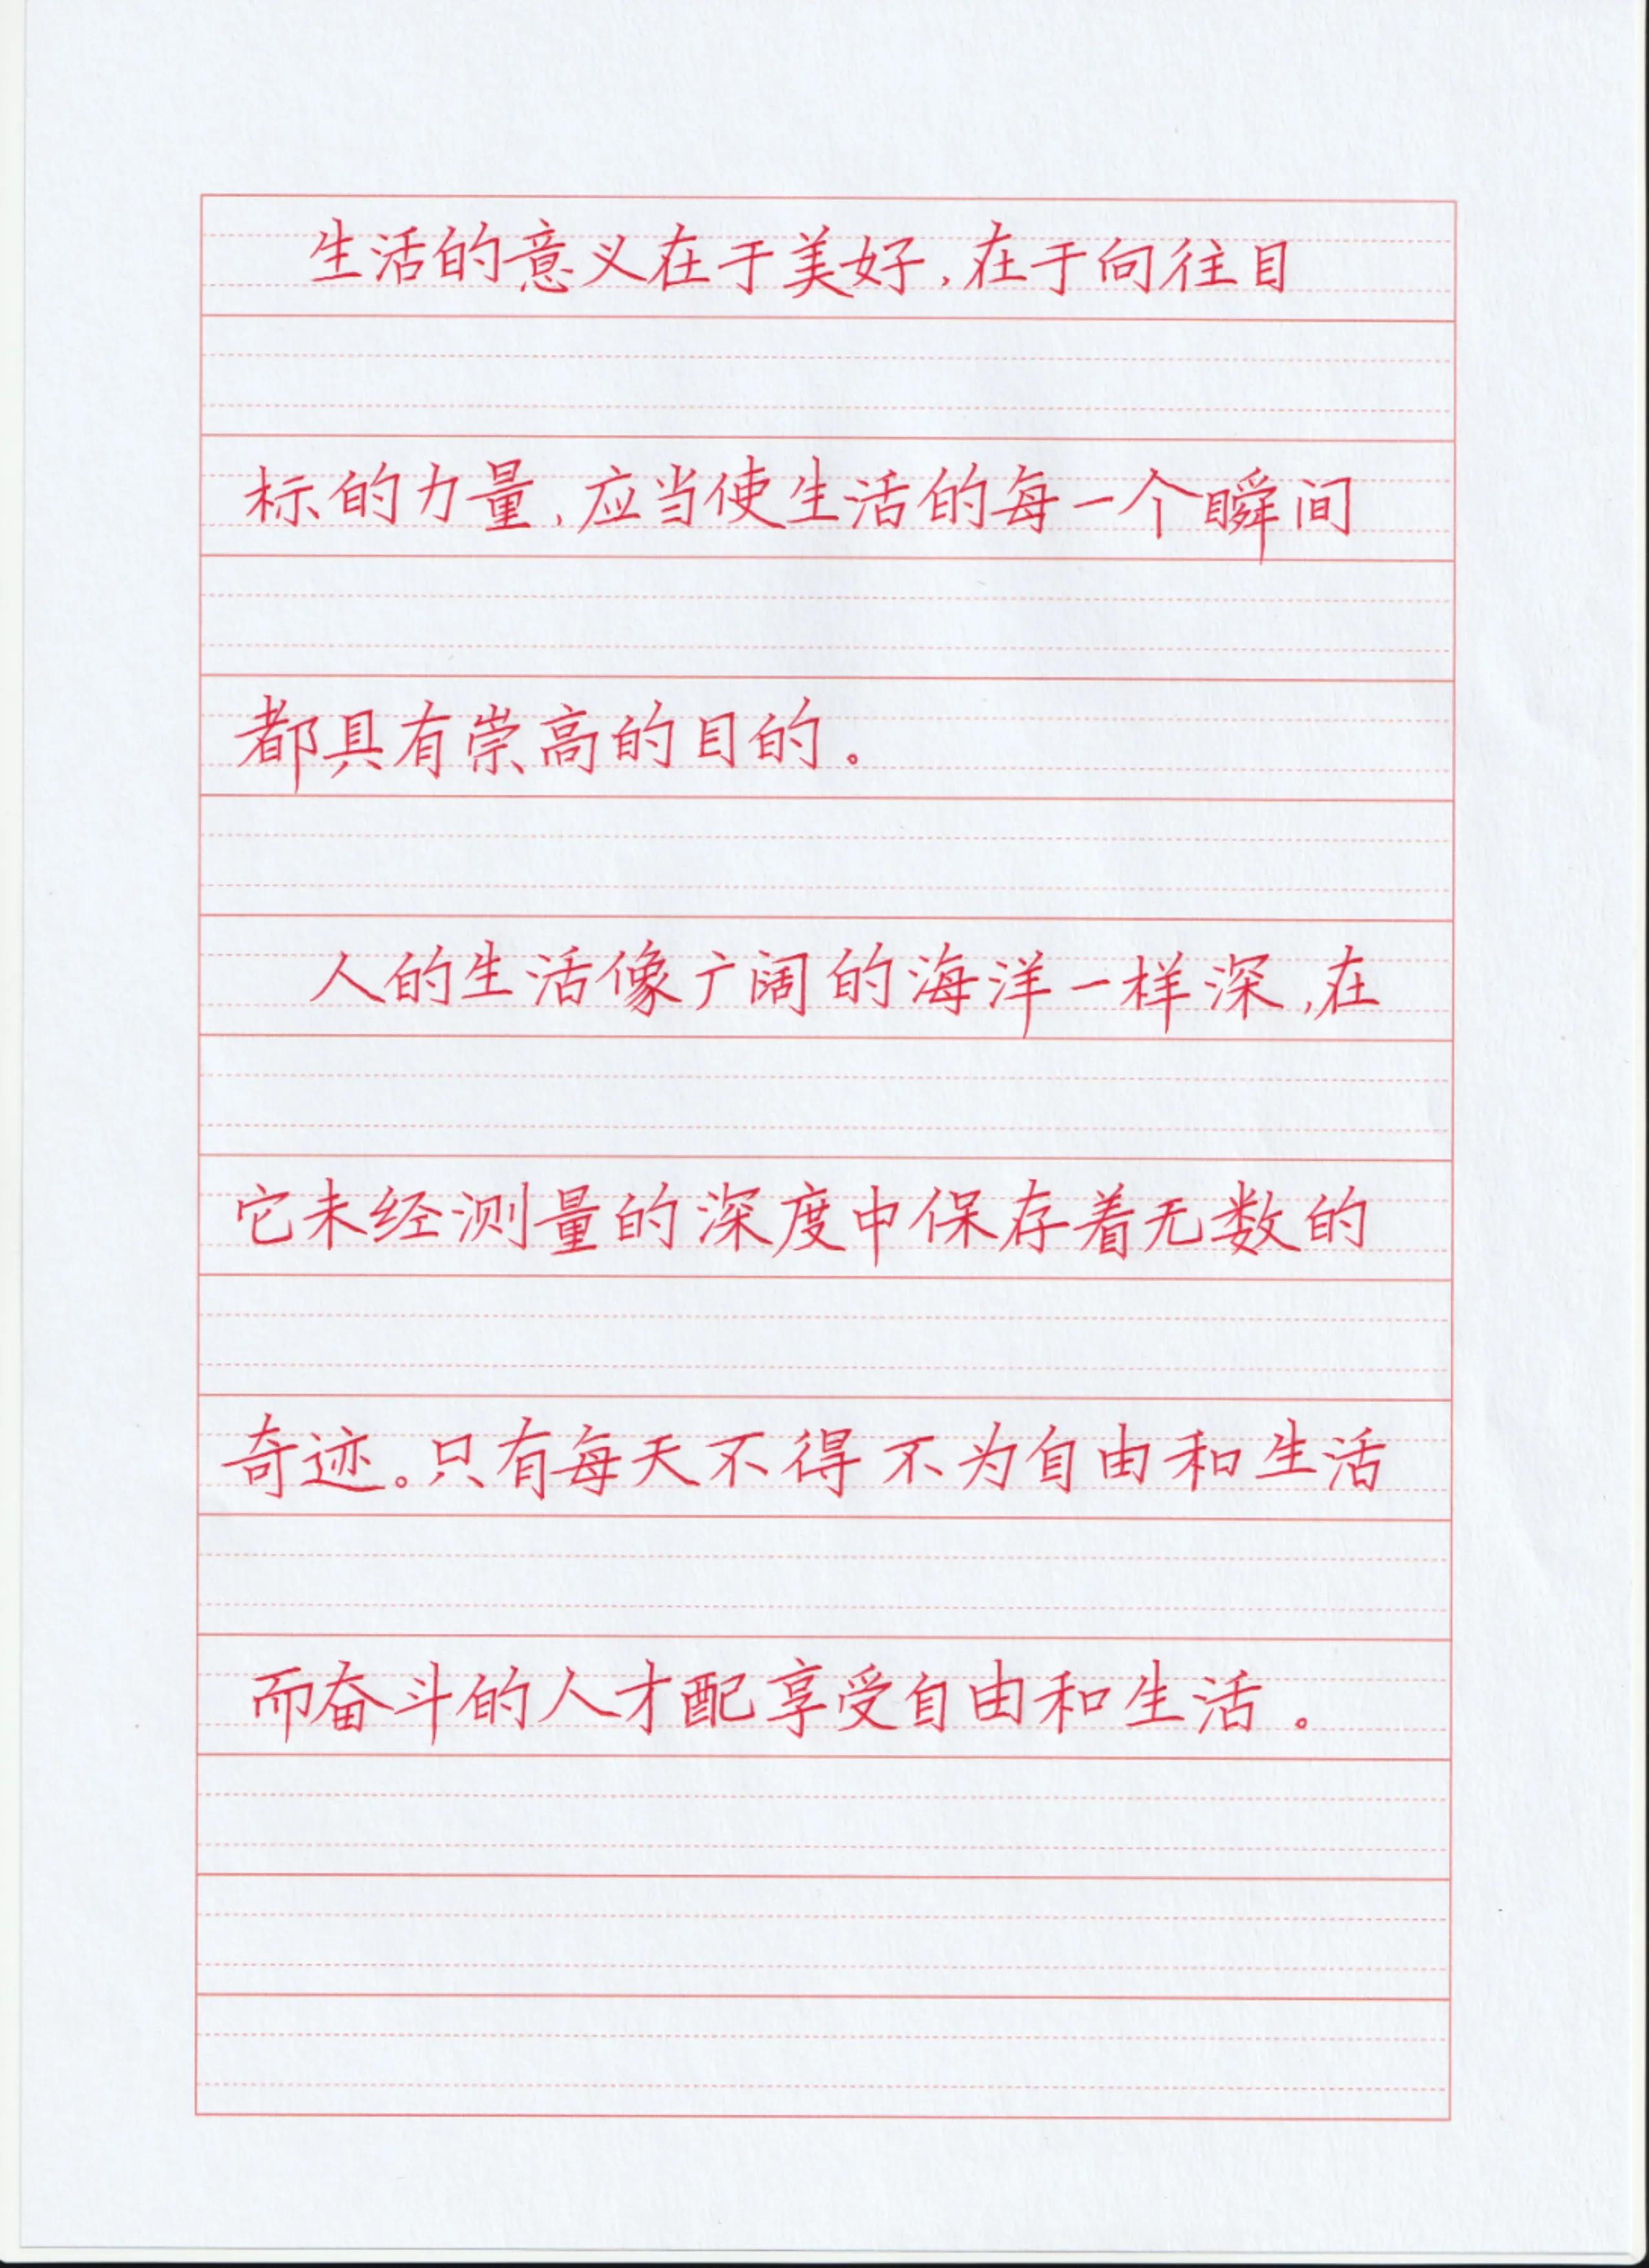 生活的意义在于美好,在于向往目
标的力量,应当使生活的每一个瞬间
都具有崇高的目的。
人的生活像广阔的海洋一样深,在
它未经测量的深度中保存着无数的
奇迹。只有每天不得不为自由和生活
而奋斗的人才配享受自由和生活。